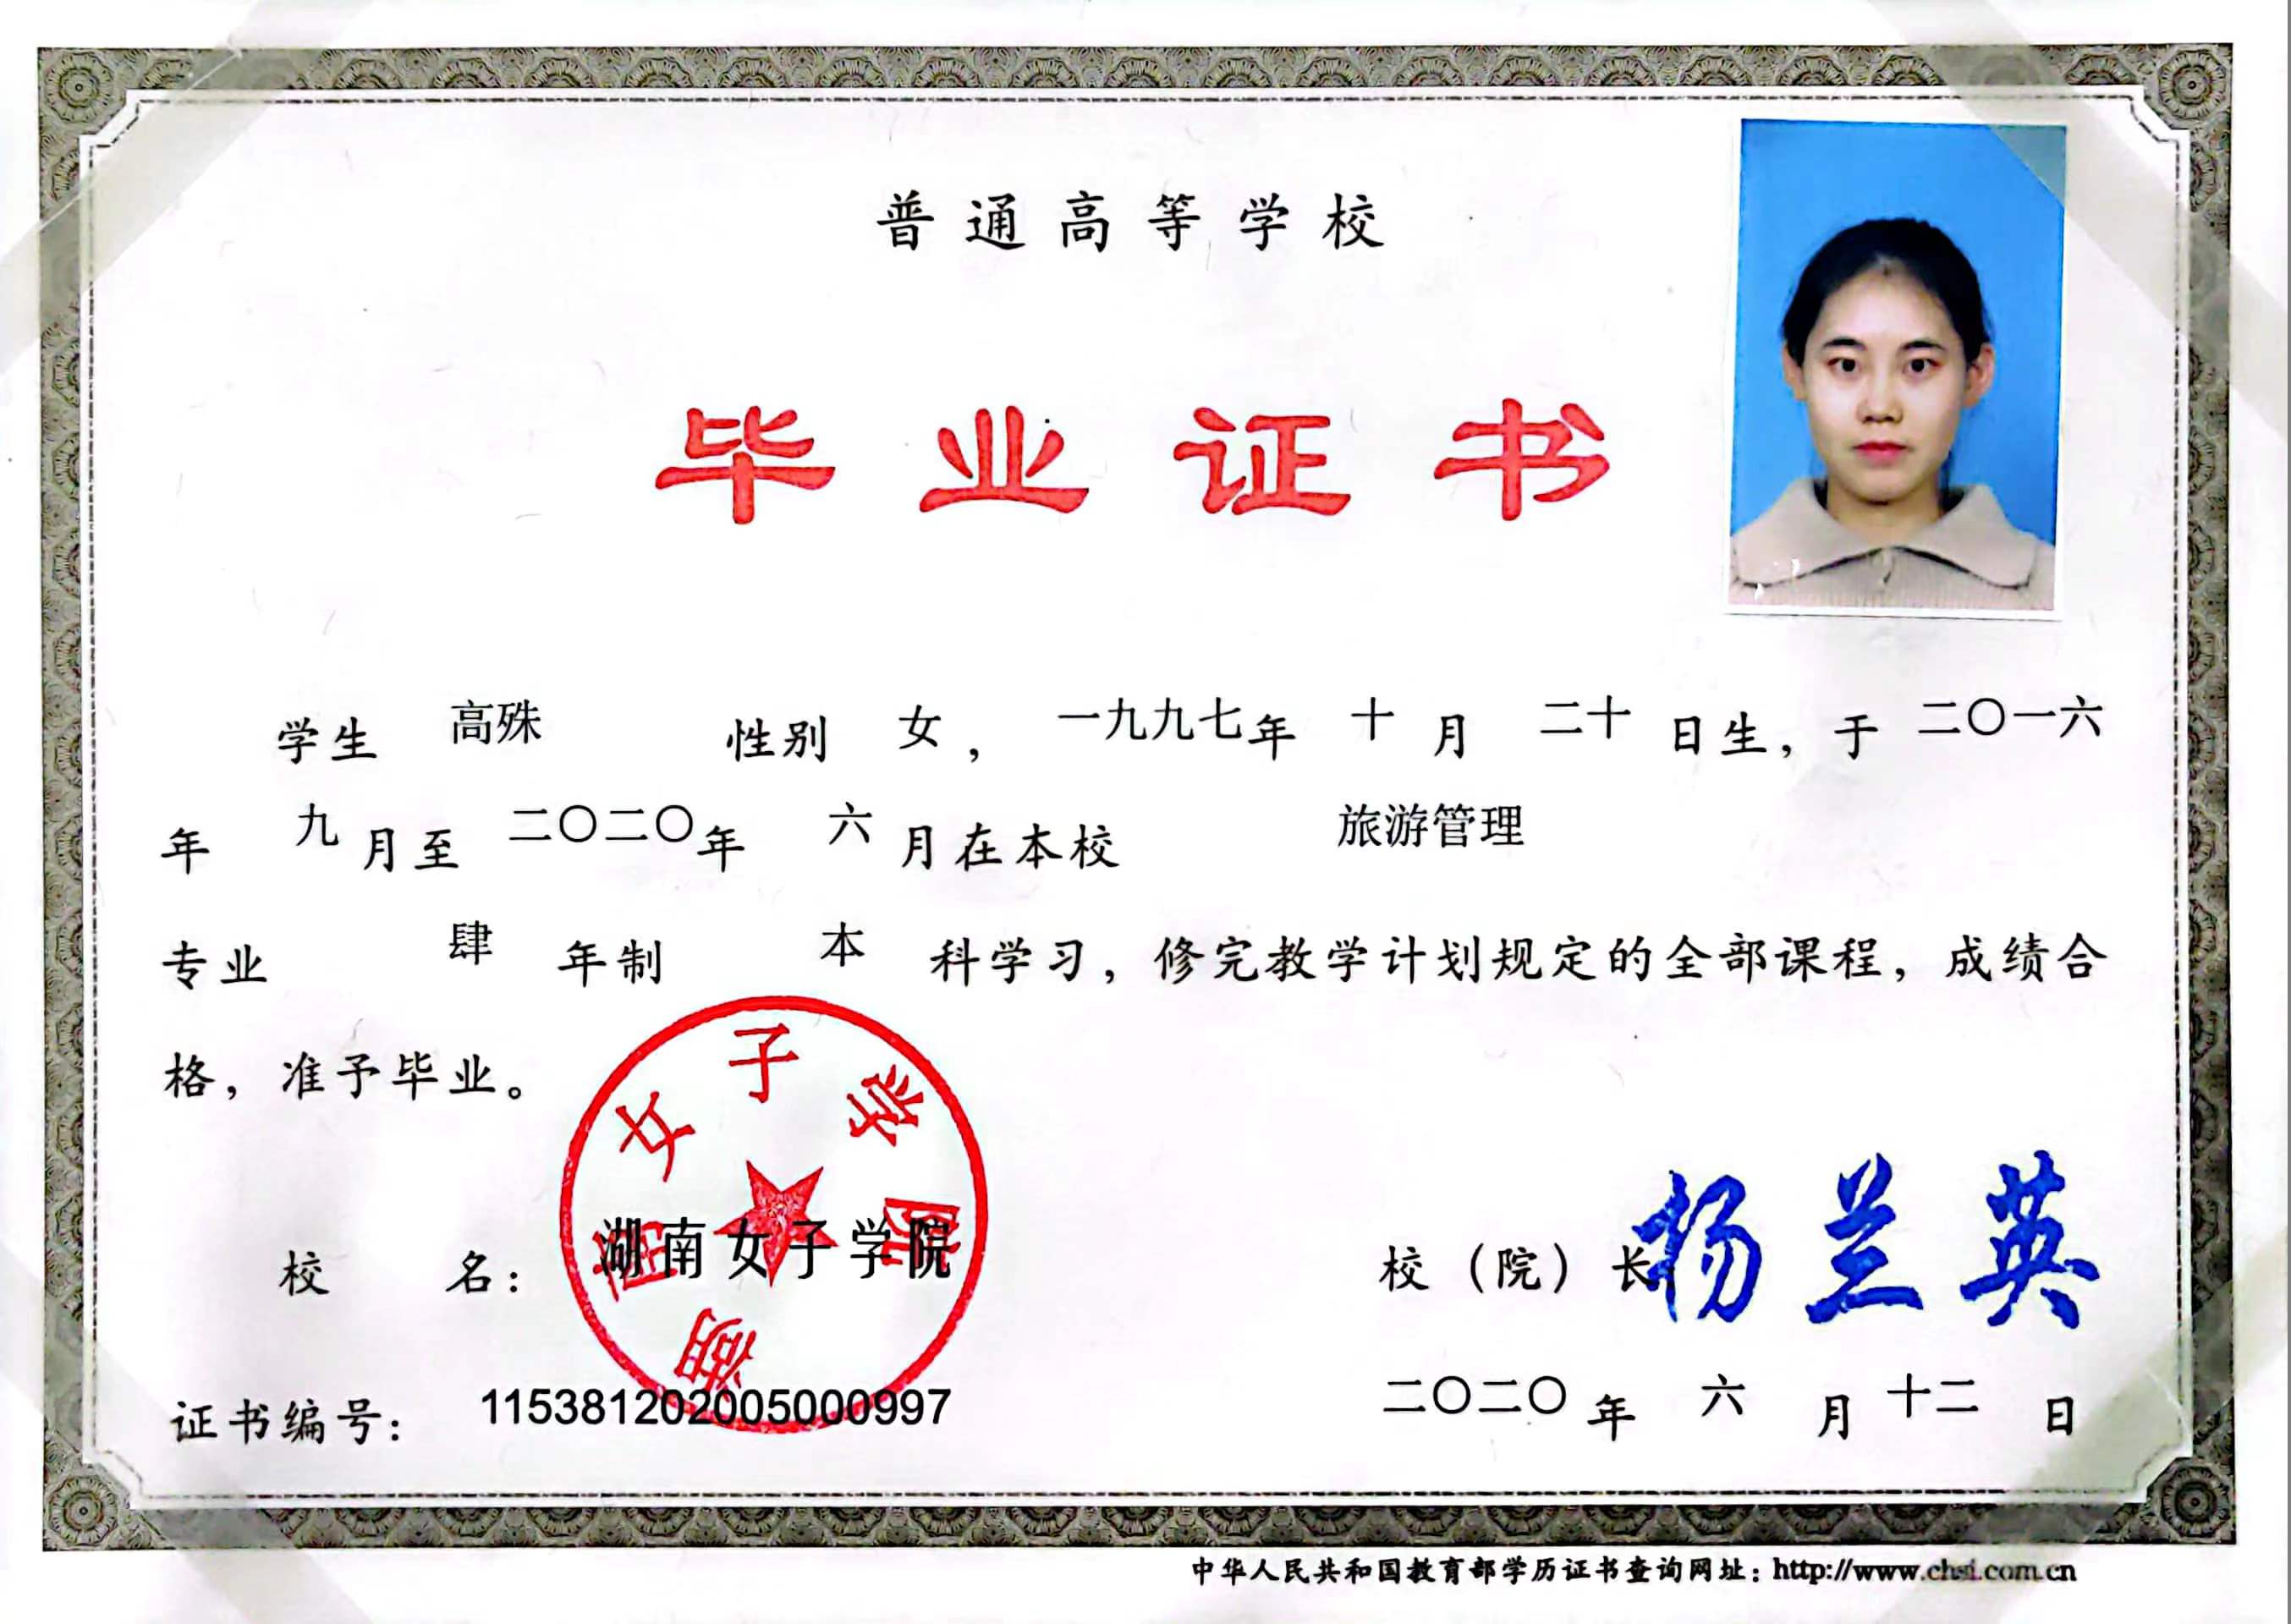 普通高等学校
毕业证书
学生 高殊 性别 女，一九九七年 十 月 二十 日生，于 二〇一六
年 九 月至 二〇二〇年 六 月在本校 旅游管理
专业 肆 年制 本 科学习，修完教学计划规定的全部课程，成绩合
格，准予毕业。
湖南女子学院
校 名：湖南女子学院
校（院）长 杨兰英
证书编号：115381202005000997
二〇二〇 年 六 月 十二 日
中华人民共和国教育部学历证书查询网址：http://www.chsi.com.cn